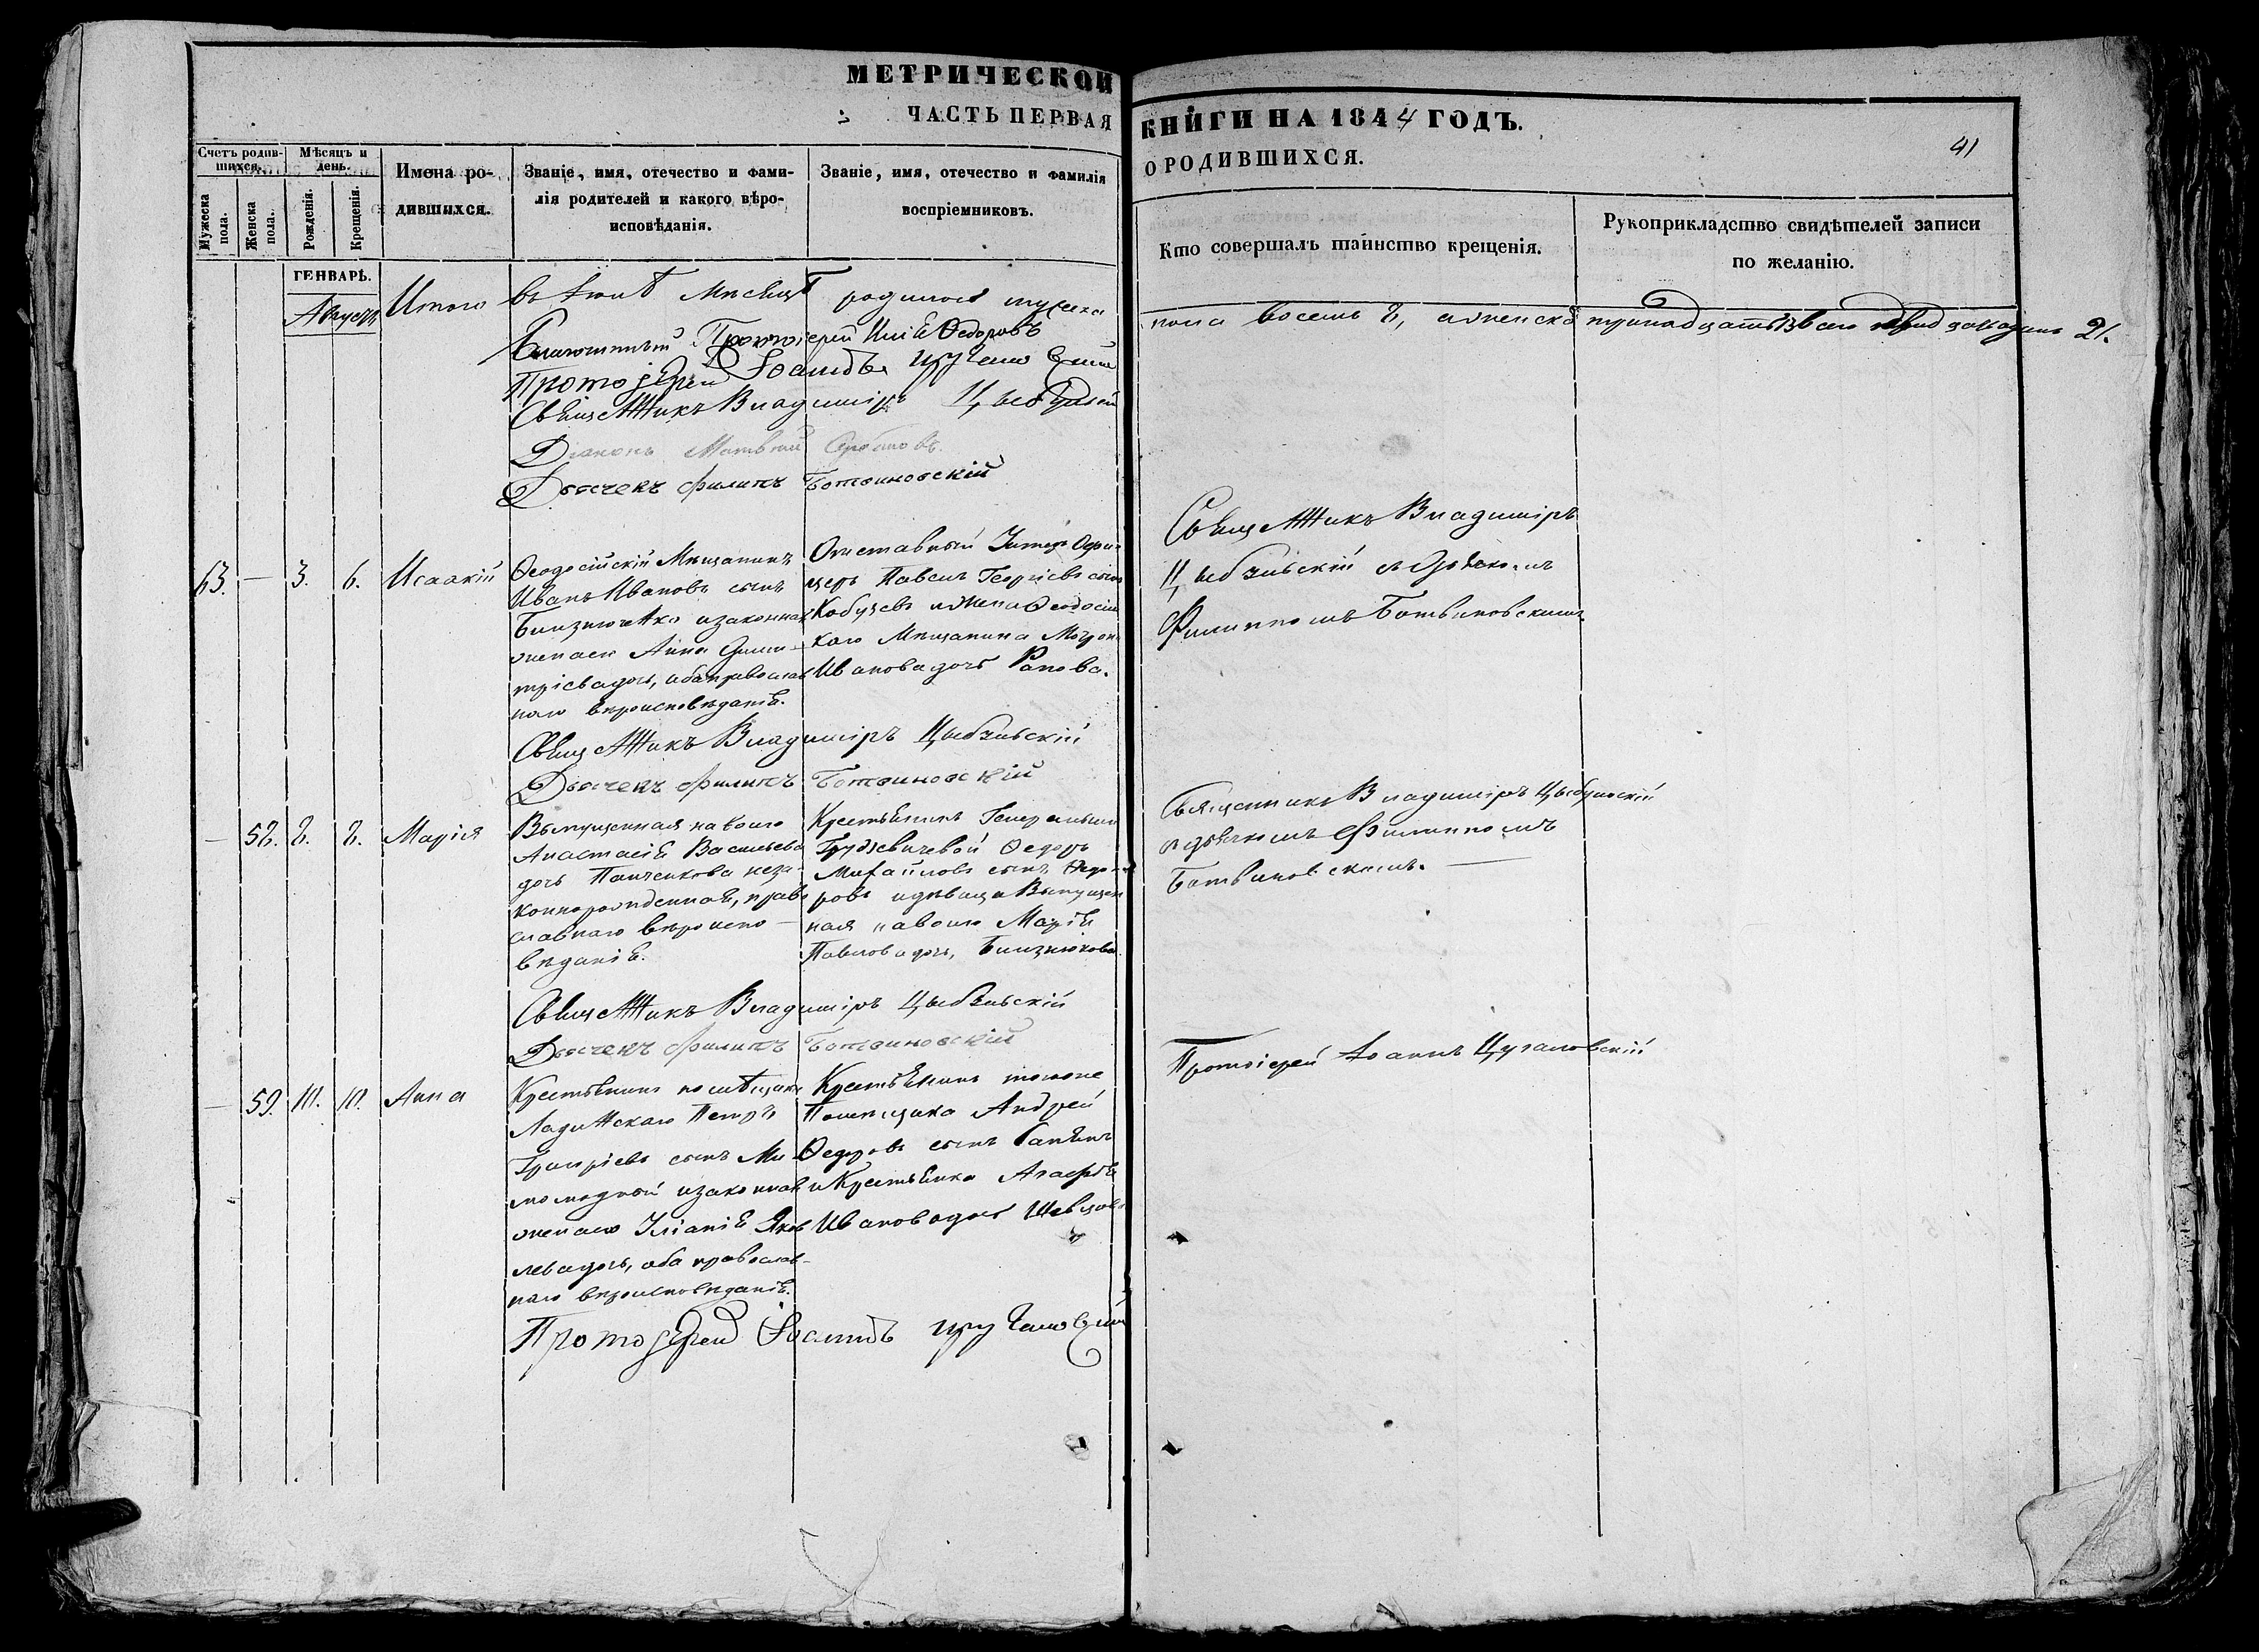 МЕТРИЧЕСКОЙ
ЧАСТЬ ПЕРВАЯ
КНИГИ НА 1844 ГОДЪ.
О РОДИВШИХСЯ.
41
Счетъ родив-
шихся.
Мужеска пола.
Женска пола.
Мѣсяцъ и
день.
Рожденія.
Крещенія.
Имена ро-
дившихся.
Званіе, имя, отечество и фами-
лія родителей и какого вѣро-
исповѣданія.
Званіе, имя, отечество и фамилія
воспріемниковъ.
Кто совершалъ таинство крещенія.
Рукоприкладство свидѣтелей записи
по желанію.
ГЕНВАРЬ.
Августъ
Итого въ Іюлѣ Мѣсяцѣ родилось мужеска
пола восемь 8, а женска тринадцать 13 всего 21.
Благочинный Протоіерей Ѳедоровъ
Протоіерей Іоаннъ
Священникъ Владиміръ
Діаконъ Матвѣй
Дьячекъ Филипъ Ботвиновскій
63. — 3. 6. Исаакій
Ѳеодосійскій Мѣщанинъ
Иванъ Ивановъ сынъ
Близнюченко и законная
жена его Анна Дими-
тріева дочь, оба православ
наго вѣроисповѣданія.
Отставный Унтеръ Офи-
церъ Павелъ Георгіевъ сынъ
Кобузевъ и жена Ѳеодосій
каго Мѣщанина Матрона
Иванова дочь Рапова.
Священникъ Владиміръ
Цыбульскій съ Дьячкомъ
Филиппомъ Ботвиновскимъ
Священникъ Владиміръ Цыбульскій
Дьячекъ Филипъ Ботвиновскій
— 58. 8. 8. Марія
Выпущенная на волю
Анастасія Васильева
дочь Панченкова неза-
коннорожденная, право
славнаго вѣроиспо-
вѣданія.
Крестьянинъ Генеральши
Гудзевичевой Ѳедоръ
Михайловъ сынъ Ѳедо-
ровъ и дѣвица Выпущен
ная на волю Марія
Павлова дочь, Близнюкова.
Священникъ Владиміръ Цыбульскій
съ дьячкомъ Филиппомъ
Ботвиновскимъ.
Священникъ Владиміръ Цыбульскій
Дьячекъ Филипъ Ботвиновскій
— 59. 10. 10. Анна
Крестьянинъ помѣщика
Ладинскаго Петръ
Григріевъ сынъ Ми-
молодный и законная
жена его Уліанія Яков
лева дочь, оба православ-
наго вѣроисповѣданія.
Крестьянинъ тогоже
Помѣщика Андрей
Ѳедоровъ сынъ
и Крестьянка Агафія
Иванова дочь Шевцова
Протоіерей Іоаннъ
Протоіерей Іоаннъ